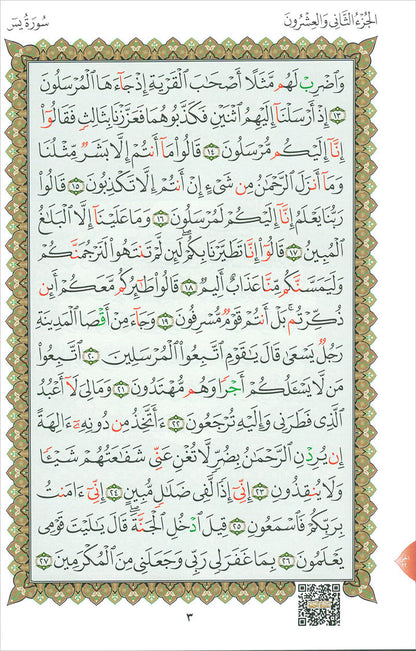 الجُزْءُ الثَّانِي وَالعِشْرُونَ
سُورَةُ يسٓ
وَاضْرِبْ لَهُم مَّثَلًا أَصْحَابَ الْقَرْيَةِ إِذْ جَاءَهَا الْمُرْسَلُونَ
١٣ إِذْ أَرْسَلْنَا إِلَيْهِمُ اثْنَيْنِ فَكَذَّبُوهُمَا فَعَزَّزْنَا بِثَالِثٍ فَقَالُوا
إِنَّا إِلَيْكُم مُّرْسَلُونَ ١٤ قَالُوا مَا أَنتُمْ إِلَّا بَشَرٌ مِّثْلُنَا
وَمَا أَنزَلَ الرَّحْمَٰنُ مِن شَيْءٍ إِنْ أَنتُمْ إِلَّا تَكْذِبُونَ ١٥ قَالُوا
رَبُّنَا يَعْلَمُ إِنَّا إِلَيْكُمْ لَمُرْسَلُونَ ١٦ وَمَا عَلَيْنَا إِلَّا الْبَلَٰغُ
الْمُبِينُ ١٧ قَالُوا إِنَّا تَطَيَّرْنَا بِكُمْ لَئِن لَّمْ تَنتَهُوا لَنَرْجُمَنَّكُمْ
وَلَيَمَسَّنَّكُم مِّنَّا عَذَابٌ أَلِيمٌ ١٨ قَالُوا طَٰئِرُكُم مَّعَكُمْ أَئِن
ذُكِّرْتُم بَلْ أَنتُمْ قَوْمٌ مُّسْرِفُونَ ١٩ وَجَاءَ مِنْ أَقْصَا الْمَدِينَةِ
رَجُلٌ يَسْعَىٰ قَالَ يَٰقَوْمِ اتَّبِعُوا الْمُرْسَلِينَ ٢٠ اتَّبِعُوا
مَن لَّا يَسْـَٔلُكُمْ أَجْرًا وَهُم مُّهْتَدُونَ ٢١ وَمَا لِيَ لَا أَعْبُدُ
الَّذِي فَطَرَنِي وَإِلَيْهِ تُرْجَعُونَ ٢٢ ءَأَتَّخِذُ مِن دُونِهِ ءَالِهَةً
إِن يُرِدْنِ الرَّحْمَٰنُ بِضُرٍّ لَّا تُغْنِ عَنِّي شَفَٰعَتُهُمْ شَيْـًٔا
وَلَا يُنقِذُونِ ٢٣ إِنِّي إِذًا لَّفِي ضَلَٰلٍ مُّبِينٍ ٢٤ إِنِّي ءَامَنتُ
بِرَبِّكُمْ فَاسْمَعُونِ ٢٥ قِيلَ ادْخُلِ الْجَنَّةَ قَالَ يَٰلَيْتَ قَوْمِي
يَعْلَمُونَ ٢٦ بِمَا غَفَرَ لِي رَبِّي وَجَعَلَنِي مِنَ الْمُكْرَمِينَ ٢٧
٣